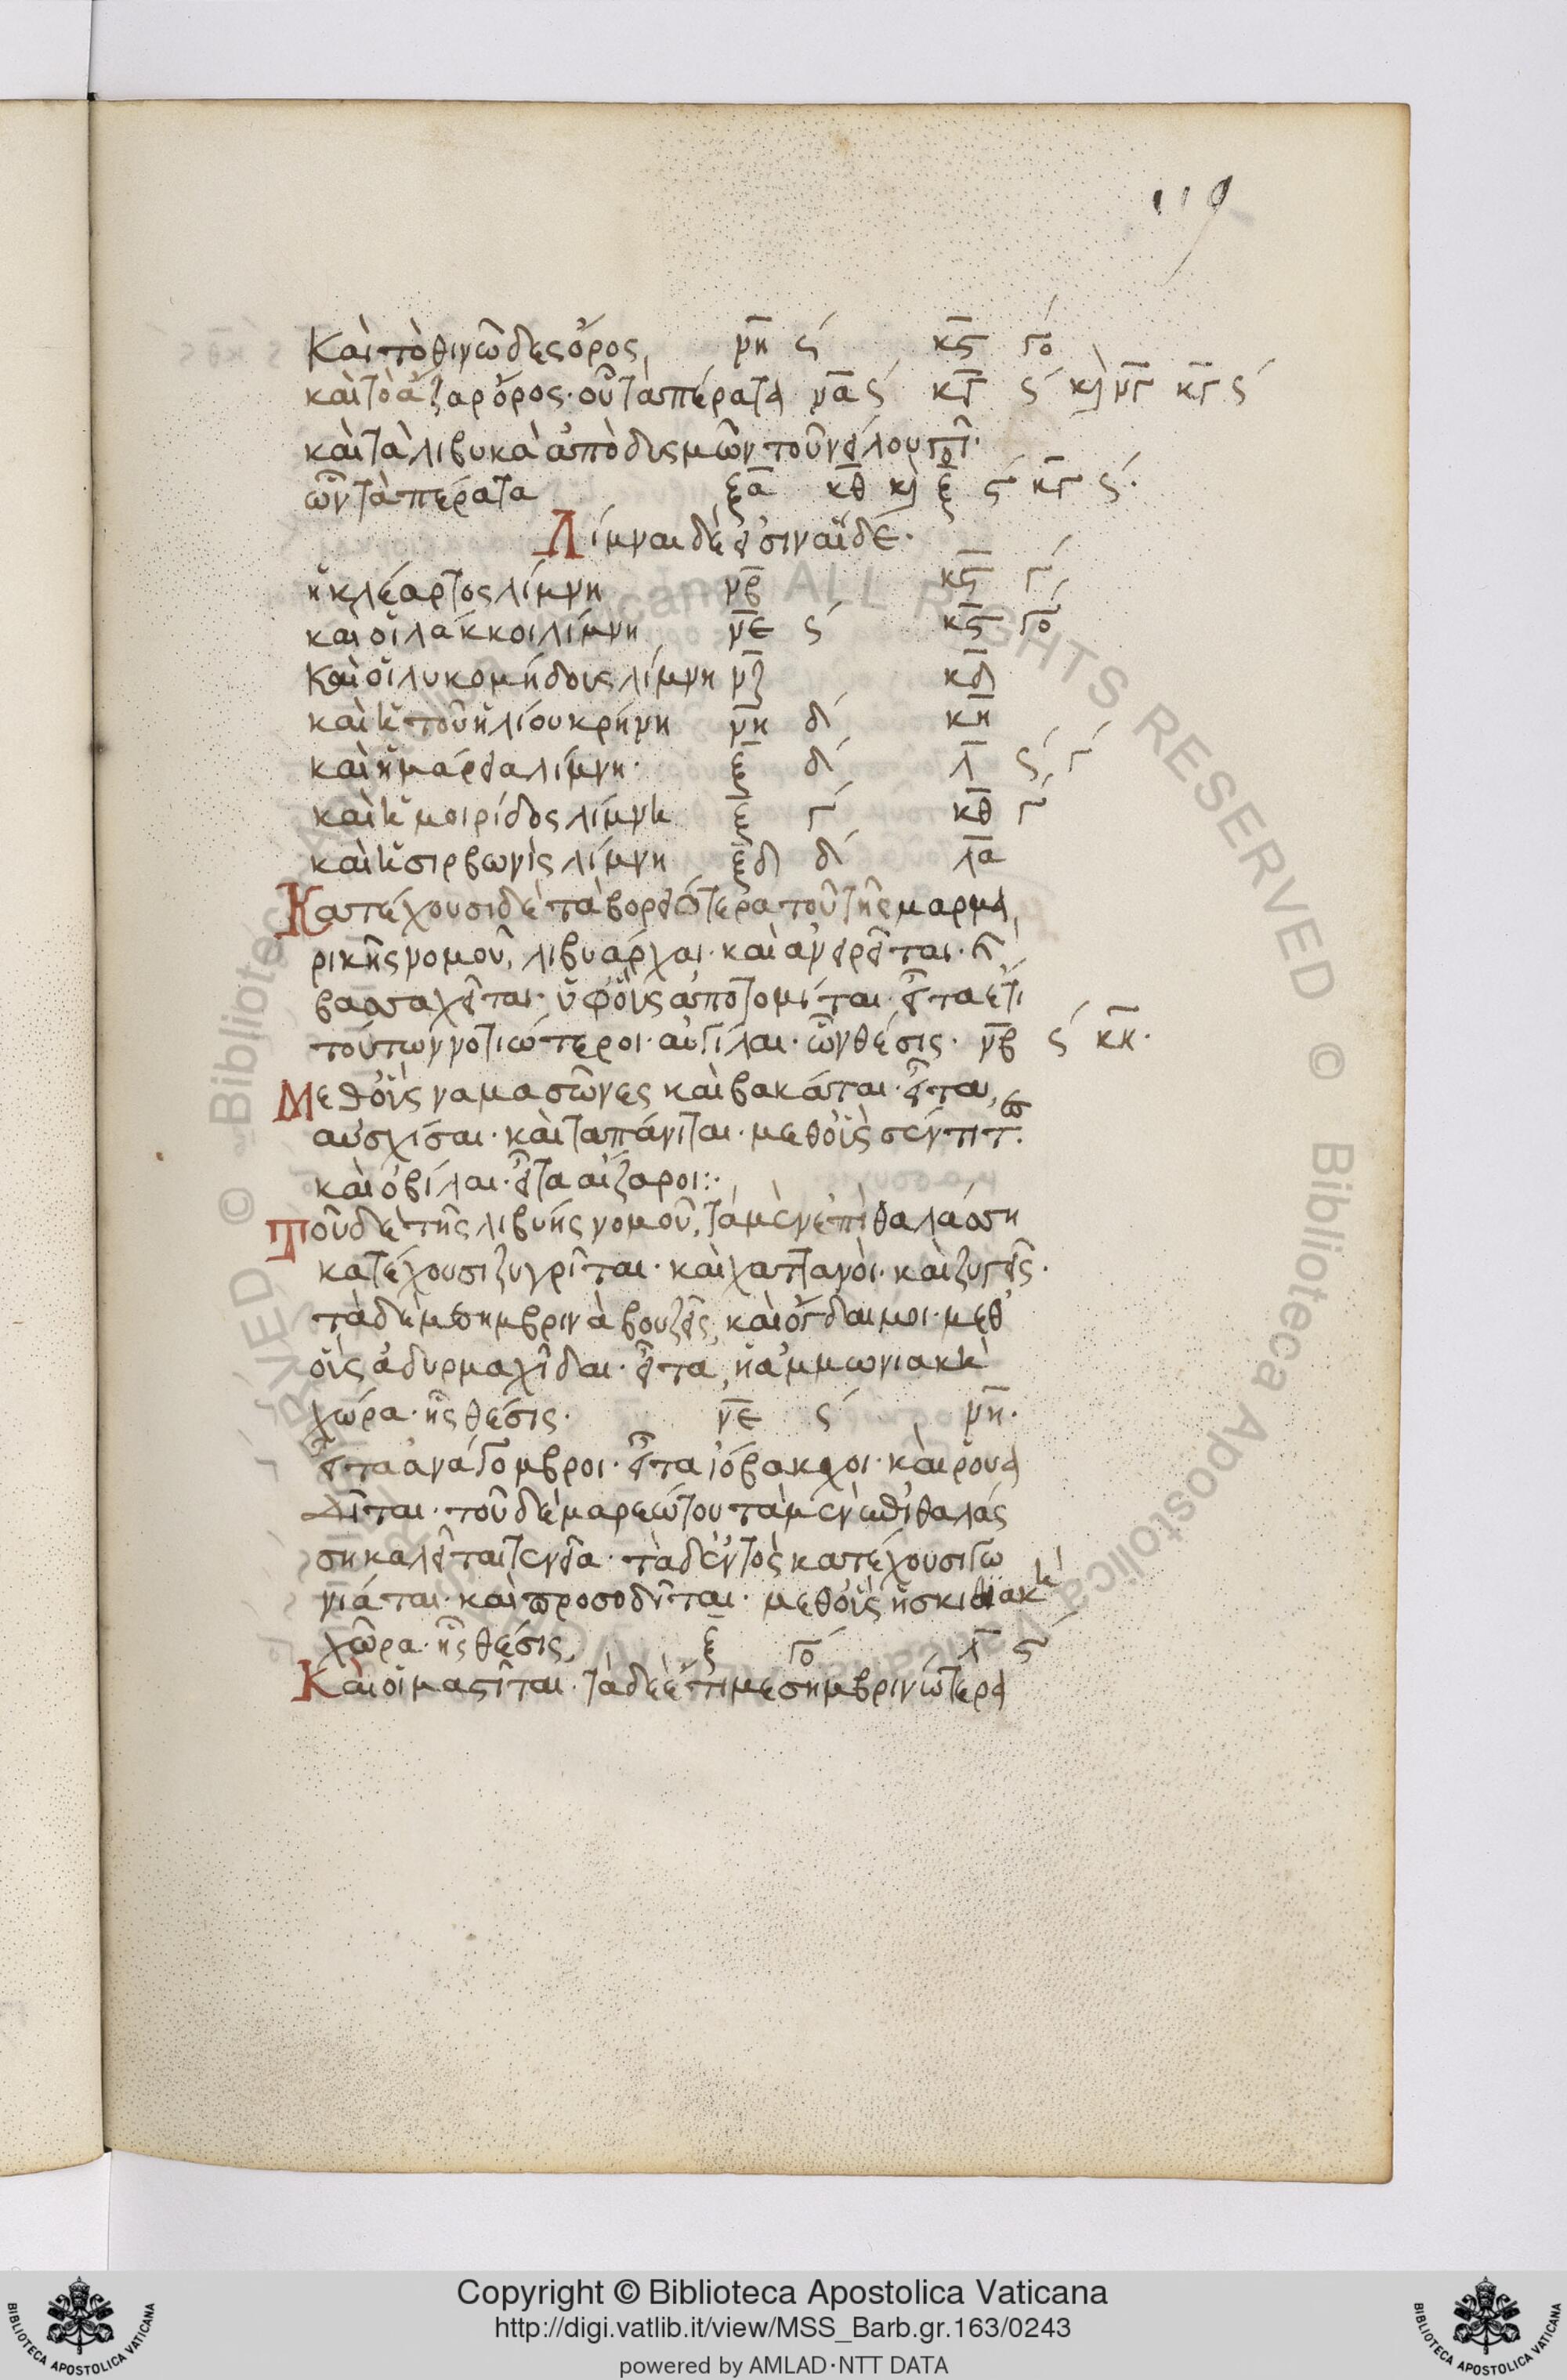 119
Καὶ τὸ θινῶδες ὄρος, μ̅η̅ ς΄ κ̅ς̅ γο΄
καὶ τὸ ἄζαρ ὄρος· οὗ τὰ πέρατα ν̅α̅ ς΄ κ̅γ̅ ς΄ κ̀ ν̅γ̅ κ̅γ̅ ς΄
καὶ τὰ λιβυκὰ ἀπὸ δυσμῶν τοῦ νείλου
ὧν τὰ πέρατα ξ̅α̅ κ̅θ̅ κ̀ ξ̅ ς΄ κ̅γ̅ ς΄·
Λίμναι δὲ εἰσιν αἵδε·
ἡ κλέαρτος λίμνη ν̅β̅ κ̅ς̅ γ΄,
καὶ οἱ λάκκοι λίμνη ν̅ε̅ ς΄ κ̅ς̅ γο΄
Καὶ οἱ λυκομήδους λίμνη ν̅ζ̅ κ̅δ̅
καὶ ἡ τοῦ ἡλίου κρήνη ν̅η̅ δ΄ κ̅η̅
καὶ ἡ μάρεια λίμνη· ξ̅ δ΄ λ̅ ς΄, γ΄
καὶ ἡ μοιρίδος λίμνη ξ̅ γ΄ κ̅θ̅ γ΄
καὶ ἡ σιρβωνὶς λίμνη ξ̅δ̅ δ΄ λ̅α̅
Κατέχουσι δὲ τὰ βορειότερα τοῦ τῆς μαρμα
ρικῆς νομοῦ, λιβυάρχαι· καὶ ἀνερεῖται· κ̀
βασσαχεῖται· ὑφ' οὓς ἀπτομῖται· εἶτα ἔτι
τούτων νοτιώτεροι· αὐγίλαι· ὧν θέσις· ν̅β̅ ς΄ κ̅κ̅·
Μεθ' οὓς νασαμῶνες καὶ βακάται· εἶτα,
αὐσχίσαι· καὶ ταπάνιται· μεθ' οὓς σέντιτ
καὶ ὀβίλαι· εἶτα αἰζαροι:·
Τοῦ δὲ τῆς λιβύης νομοῦ, τὰ μὲν ἐπὶ θαλάσση
κατέχουσι ζυγρῖται· καὶ χατταγοὶ· καὶ ζυγεῖς·
τὰ δὲ μεσημβρινὰ βουζεῖς, καὶ ὄγδαιμοι· μεθ'
οἷς ἀδυρμαχίδαι· εἶτα, ἡ ἀμμωνιακὴ
χώρα· ἧς θέσις· ν̅ε̅ ς΄ μ̅η̅·
εἶτα ἀνάγομβροι· εἶτα ἰόβακχοι· καὶ ρουα
δῖται· τοῦ δὲ μαρεώτου τὰ μὲν ἐπὶ θαλάς
ση καλεῖται τενεῖα· τὰ δ' ἐντὸς κατέχουσι γω
νιάται· καὶ προσοδῖται· μεθ' οὓς ἡ σκιθιακὴ
χῶρα· ἧς θέσις, ξ̅ γο΄ λ̅ ς΄
Καὶ οἱ μαστῖται· τὰ δὲ ἔτι μεσημβρινώτερα
Copyright © Biblioteca Apostolica Vaticana
http://digi.vatlib.it/view/MSS_Barb.gr.163/0243
powered by AMLAD·NTT DATA